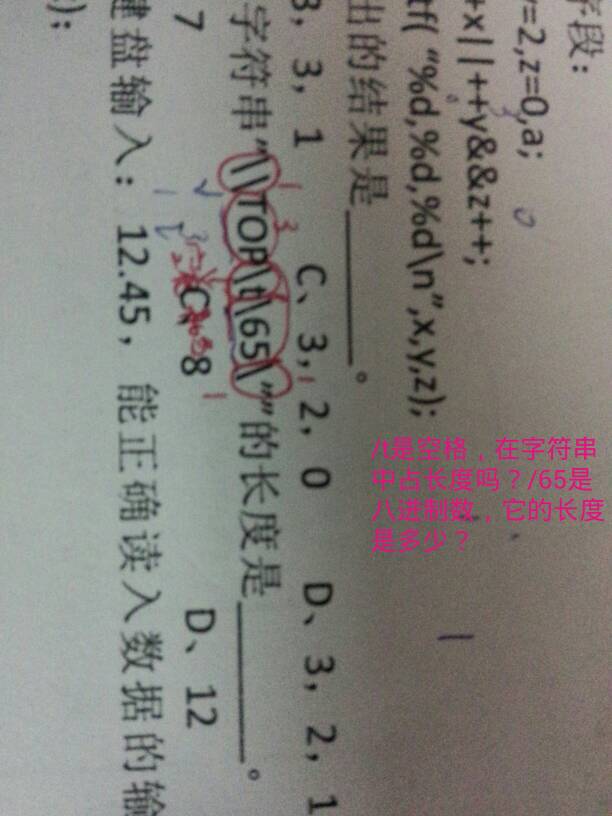 字段：
y=2,z=0,a;
+x||++y&&z++;
tf( "%d,%d,%d\n",x,y,z);
出的结果是______。
3, 3, 1 C、3, 2, 0 D、3, 2, 1
字符串"\\TOP\t\65\""的长度是______。
7 C、8 D、12
建盘输入： 12.45, 能正确读入数据的输
);
/t是空格，在字符串
中占长度吗？/65是
八进制数，它的长度
是多少？